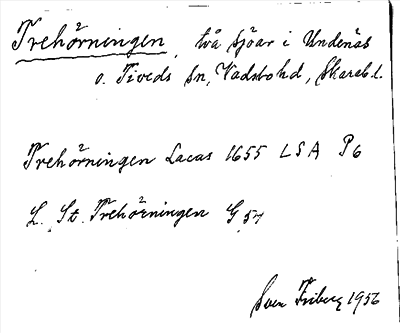 Trehörningen, två sjöar i Undenäs
o. Tiveds sn, Vadsbo hd, Skarab.l.
Trehörningen Lacus 1655 LSA P6
L. St. Trehörningen G 57
Sven Friberg 1956